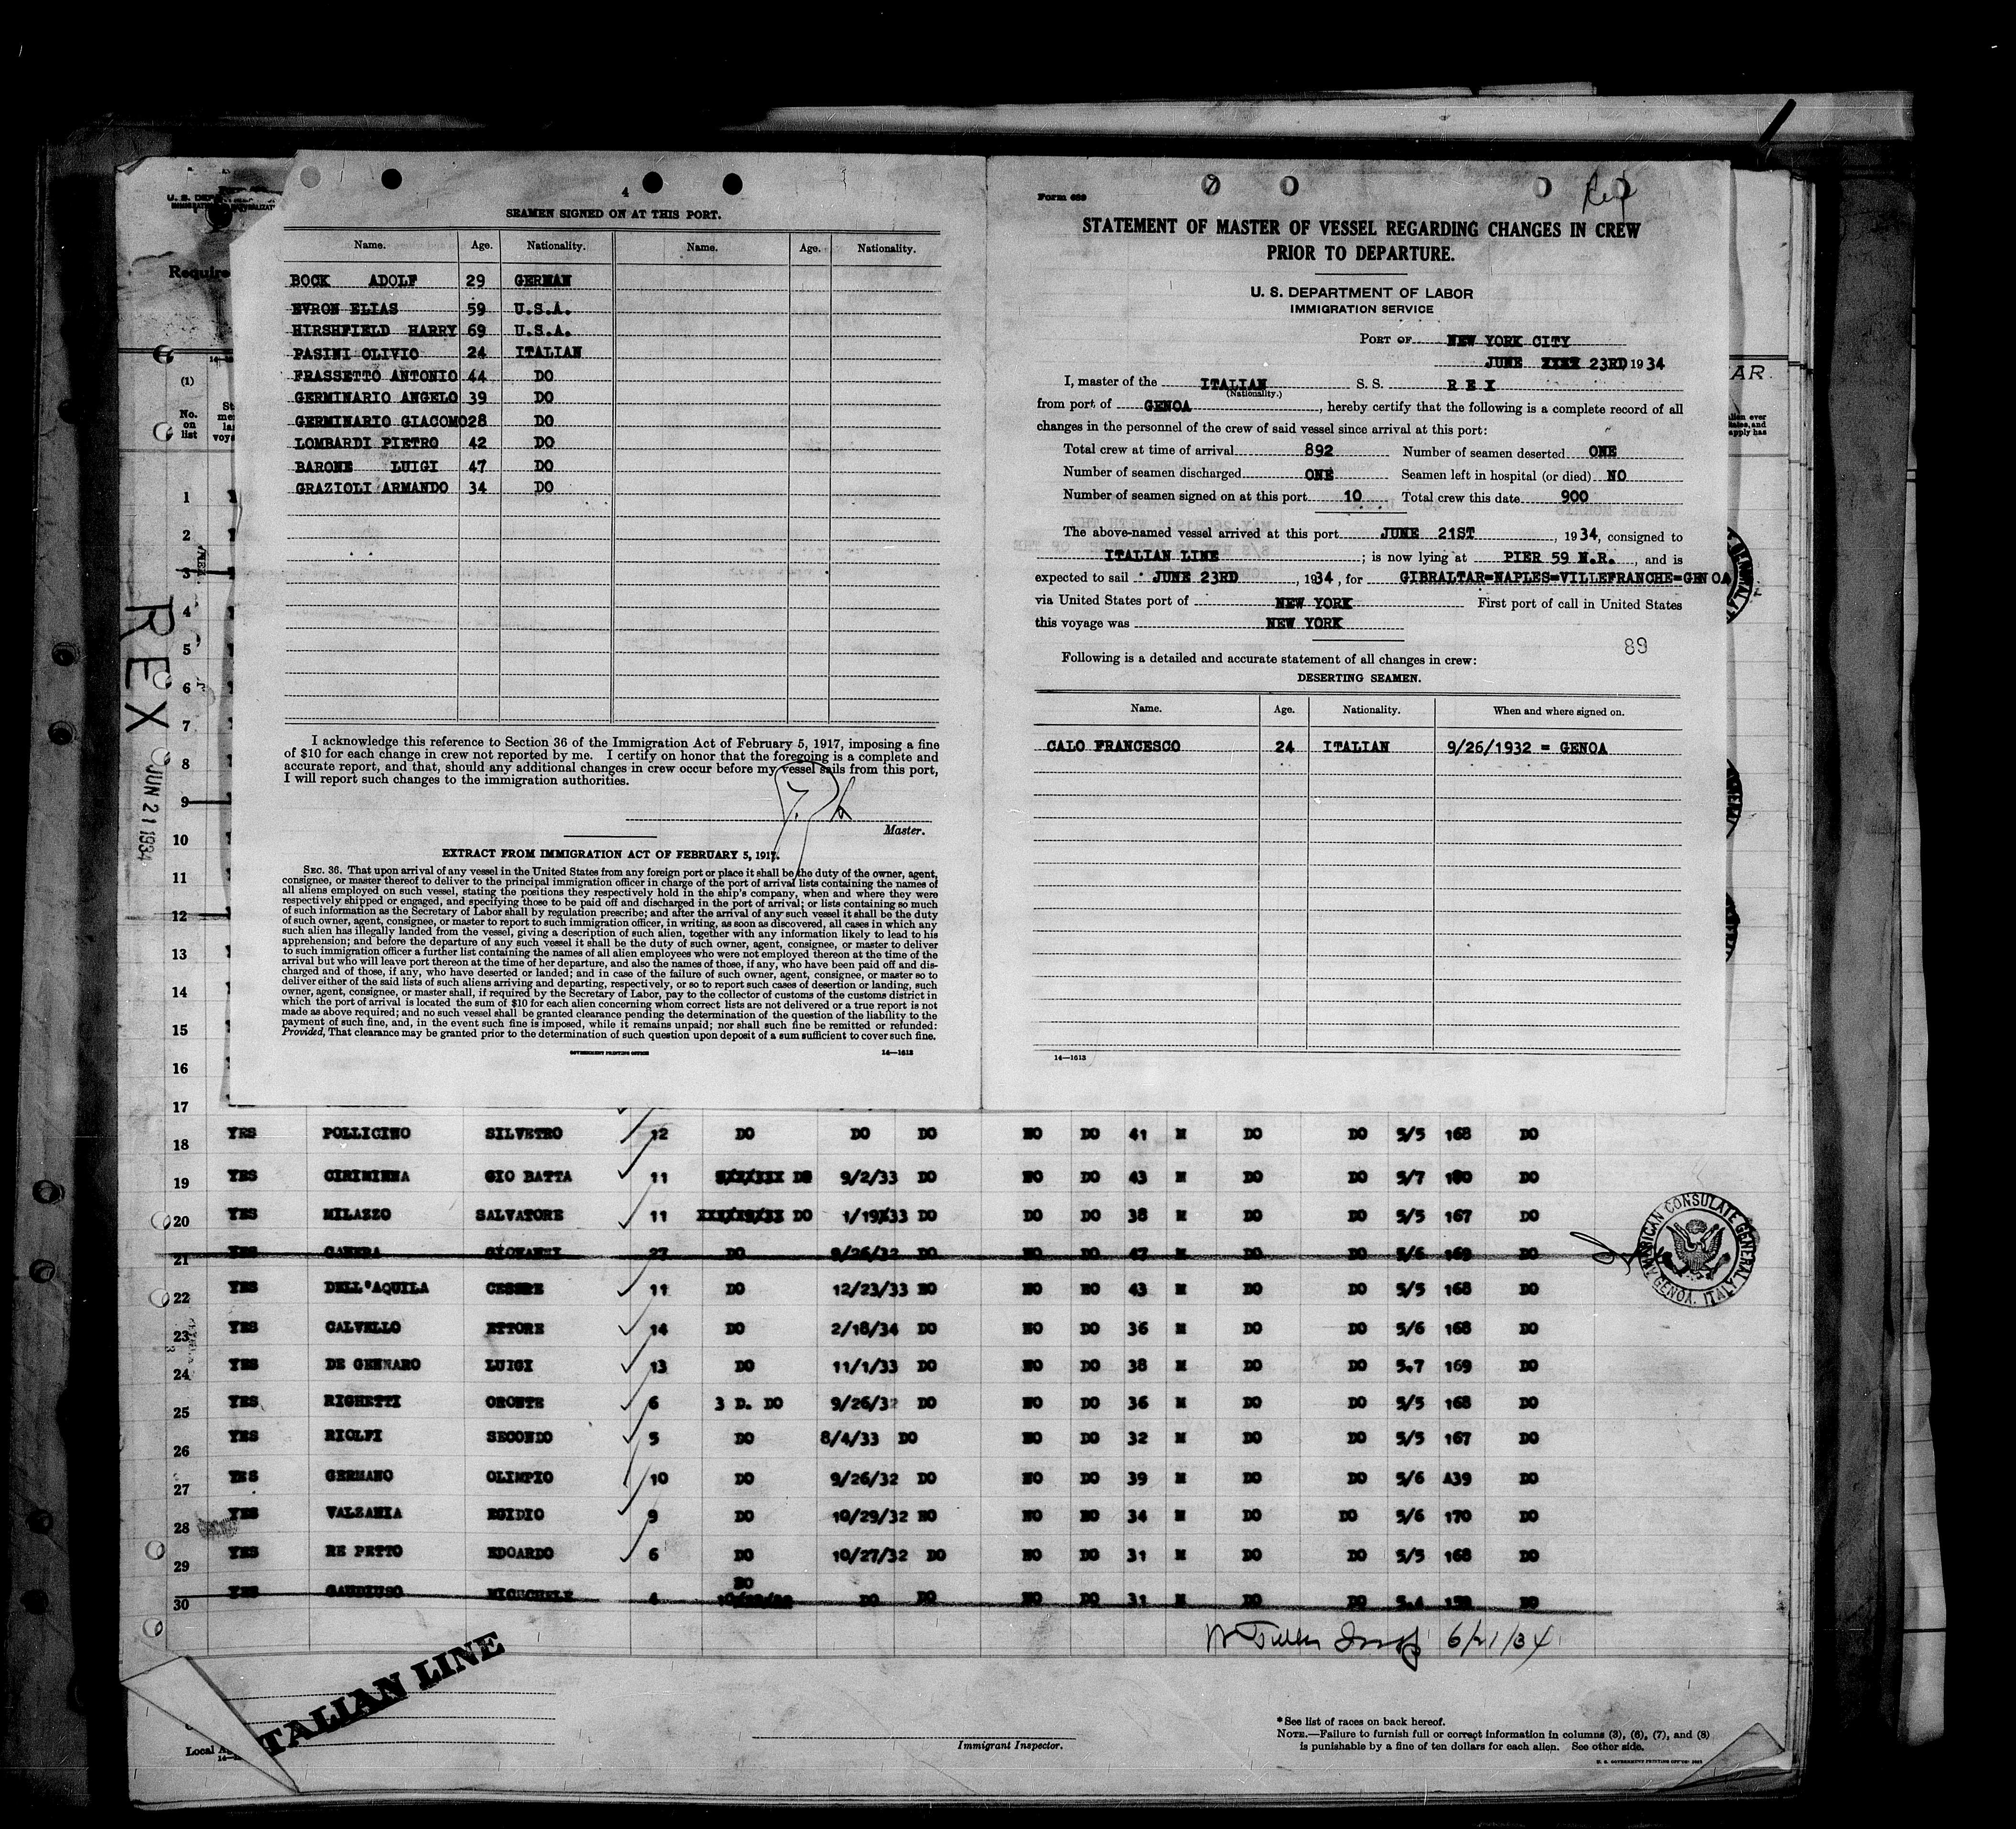 4
SEAMEN SIGNED ON AT THIS PORT.
Name. Age. Nationality. Name. Age. Nationality.
BOCK ADOLF 29 GERMAN
EVRON ELIAS 59 U.S.A.
HIRSHFIELD HARRY 69 U.S.A.
PASINI OLIVIO 24 ITALIAN
FRASSETTO ANTONIO 44 DO
GERMINARIO ANGELO 39 DO
GERMINARIO GIACOMO 28 DO
LOMBARDI PIETRO 42 DO
BARONE LUIGI 47 DO
GRAZIOLI ARMANDO 34 DO
I acknowledge this reference to Section 36 of the Immigration Act of February 5, 1917, imposing a fine
of $10 for each change in crew not reported by me. I certify on honor that the foregoing is a complete and
accurate report, and that, should any additional changes in crew occur before my vessel sails from this port,
I will report such changes to the immigration authorities.
Master.
EXTRACT FROM IMMIGRATION ACT OF FEBRUARY 5, 1917.
SEC. 36. That upon arrival of any vessel in the United States from any foreign port or place it shall be the duty of the owner, agent,
consignee, or master thereof to deliver to the principal immigration officer in charge of the port of arrival lists containing the names of
all aliens employed on such vessel, stating the positions they respectively hold in the ship's company, when and where they were
respectively shipped or engaged, and specifying those to be paid off and discharged in the port of arrival; or lists containing so much
of such information as the Secretary of Labor shall by regulation prescribe; and after the arrival of any such vessel it shall be the duty
of such owner, agent, consignee, or master to report to such immigration officer, in writing, as soon as discovered, all cases in which any
such alien has illegally landed from the vessel, giving a description of such alien, together with any information likely to lead to his
apprehension; and before the departure of any such vessel it shall be the duty of such owner, agent, consignee, or master to deliver
to such immigration officer a further list containing the names of all alien employees who were not employed thereon at the time of the
arrival but who will leave port thereon at the time of her departure, and also the names of those, if any, who have been paid off and dis-
charged and of those, if any, who have deserted or landed; and in case of the failure of such owner, agent, consignee, or master so to
deliver either of the said lists of such aliens arriving and departing, respectively, or so to report such cases of desertion or landing, such
owner, agent, consignee, or master shall, if required by the Secretary of Labor, pay to the collector of customs of the customs district in
which the port of arrival is located the sum of $10 for each alien concerning whom correct lists are not delivered or a true report is not
made as above required; and no such vessel shall be granted clearance pending the determination of the question of the liability to the
payment of such fine, and, in the event such fine is imposed, while it remains unpaid; nor shall such fine be remitted or refunded:
Provided, That clearance may be granted prior to the determination of such question upon deposit of a sum sufficient to cover such fine.
GOVERNMENT PRINTING OFFICE 14—1613
Form 689
Rex
STATEMENT OF MASTER OF VESSEL REGARDING CHANGES IN CREW
PRIOR TO DEPARTURE.
U. S. DEPARTMENT OF LABOR
IMMIGRATION SERVICE
PORT OF NEW YORK CITY
JUNE XXXX 23RD 1934
I, master of the ITALIAN S. S. R E X
(Nationality.)
from port of GENOA, hereby certify that the following is a complete record of all
changes in the personnel of the crew of said vessel since arrival at this port:
Total crew at time of arrival 892 Number of seamen deserted ONE
Number of seamen discharged ONE Seamen left in hospital (or died) NO
Number of seamen signed on at this port 10 Total crew this date 900
The above-named vessel arrived at this port JUNE 21ST, 1934, consigned to
ITALIAN LINE; is now lying at PIER 59 N.R., and is
expected to sail JUNE 23RD, 1934, for GIBRALTAR=NAPLES=VILLEFRANCHE=GENOA
via United States port of NEW YORK First port of call in United States
this voyage was NEW YORK
89
Following is a detailed and accurate statement of all changes in crew:
DESERTING SEAMEN.
Name. Age. Nationality. When and where signed on.
CALO FRANCESCO 24 ITALIAN 9/26/1932 = GENOA
14—1613
U. S. DEP
Require
(1)
No.
on
list
REX
JUN 21 1934
AR
1
2
3
4
5
6
7
8
9
10
11
12
13
14
15
16
17
18 YES POLLICINO SILVETRO 12 DO DO DO NO DO 41 M DO DO 5/5 168 DO
19 YES CIRIMINNA GIO BATTA 11 DO 9/2/33 DO NO DO 43 M DO DO 5/7 180 DO
20 YES MILAZZO SALVATORE 11 DO 1/19/33 DO DO DO 38 M DO DO 5/5 167 DO
21 YES CANEPA GIOVANNI 27 DO 9/26/32 DO NO DO 47 M DO DO 5/6 169 DO
22 YES DELL'AQUILA CESERE 11 DO 12/23/33 NO NO NO 43 M DO DO 5/5 168 DO
23 YES CALVELLO ETTORE 14 DO 2/18/34 DO NO DO 36 M DO DO 5/6 168 DO
24 YES DE GENNARO LUIGI 13 DO 11/1/33 DO NO DO 38 M DO DO 5.7 169 DO
25 YES RIGHETTI ORONTE 6 3 D. DO 9/26/32 DO NO DO 36 M DO DO 5/5 168 DO
26 YES RIOLFI SECONDO 5 DO 8/4/33 DO NO DO 32 M DO DO 5/5 167 DO
27 YES GERMANO OLIMPIO 10 DO 9/26/32 DO NO DO 39 M DO DO 5/6 A39 DO
28 YES VALZANIA EGIDIO 9 DO 10/29/32 NO NO NO 34 M DO DO 5/6 170 DO
29 YES RE PETTO EDOARDO 6 DO 10/27/32 DO NO DO 31 M DO DO 5/5 168 DO
30 YES GAUDIUSO MICHCHELE 4 DO DO DO NO DO 31 M DO DO 5.4 DO
AMERICAN CONSULATE GENERAL
GENOA, ITALY
6/21/34
TALIAN LINE
Local A
Immigrant Inspector.
*See list of races on back hereof.
NOTE.—Failure to furnish full or correct information in columns (3), (6), (7), and (8)
is punishable by a fine of ten dollars for each alien. See other side.